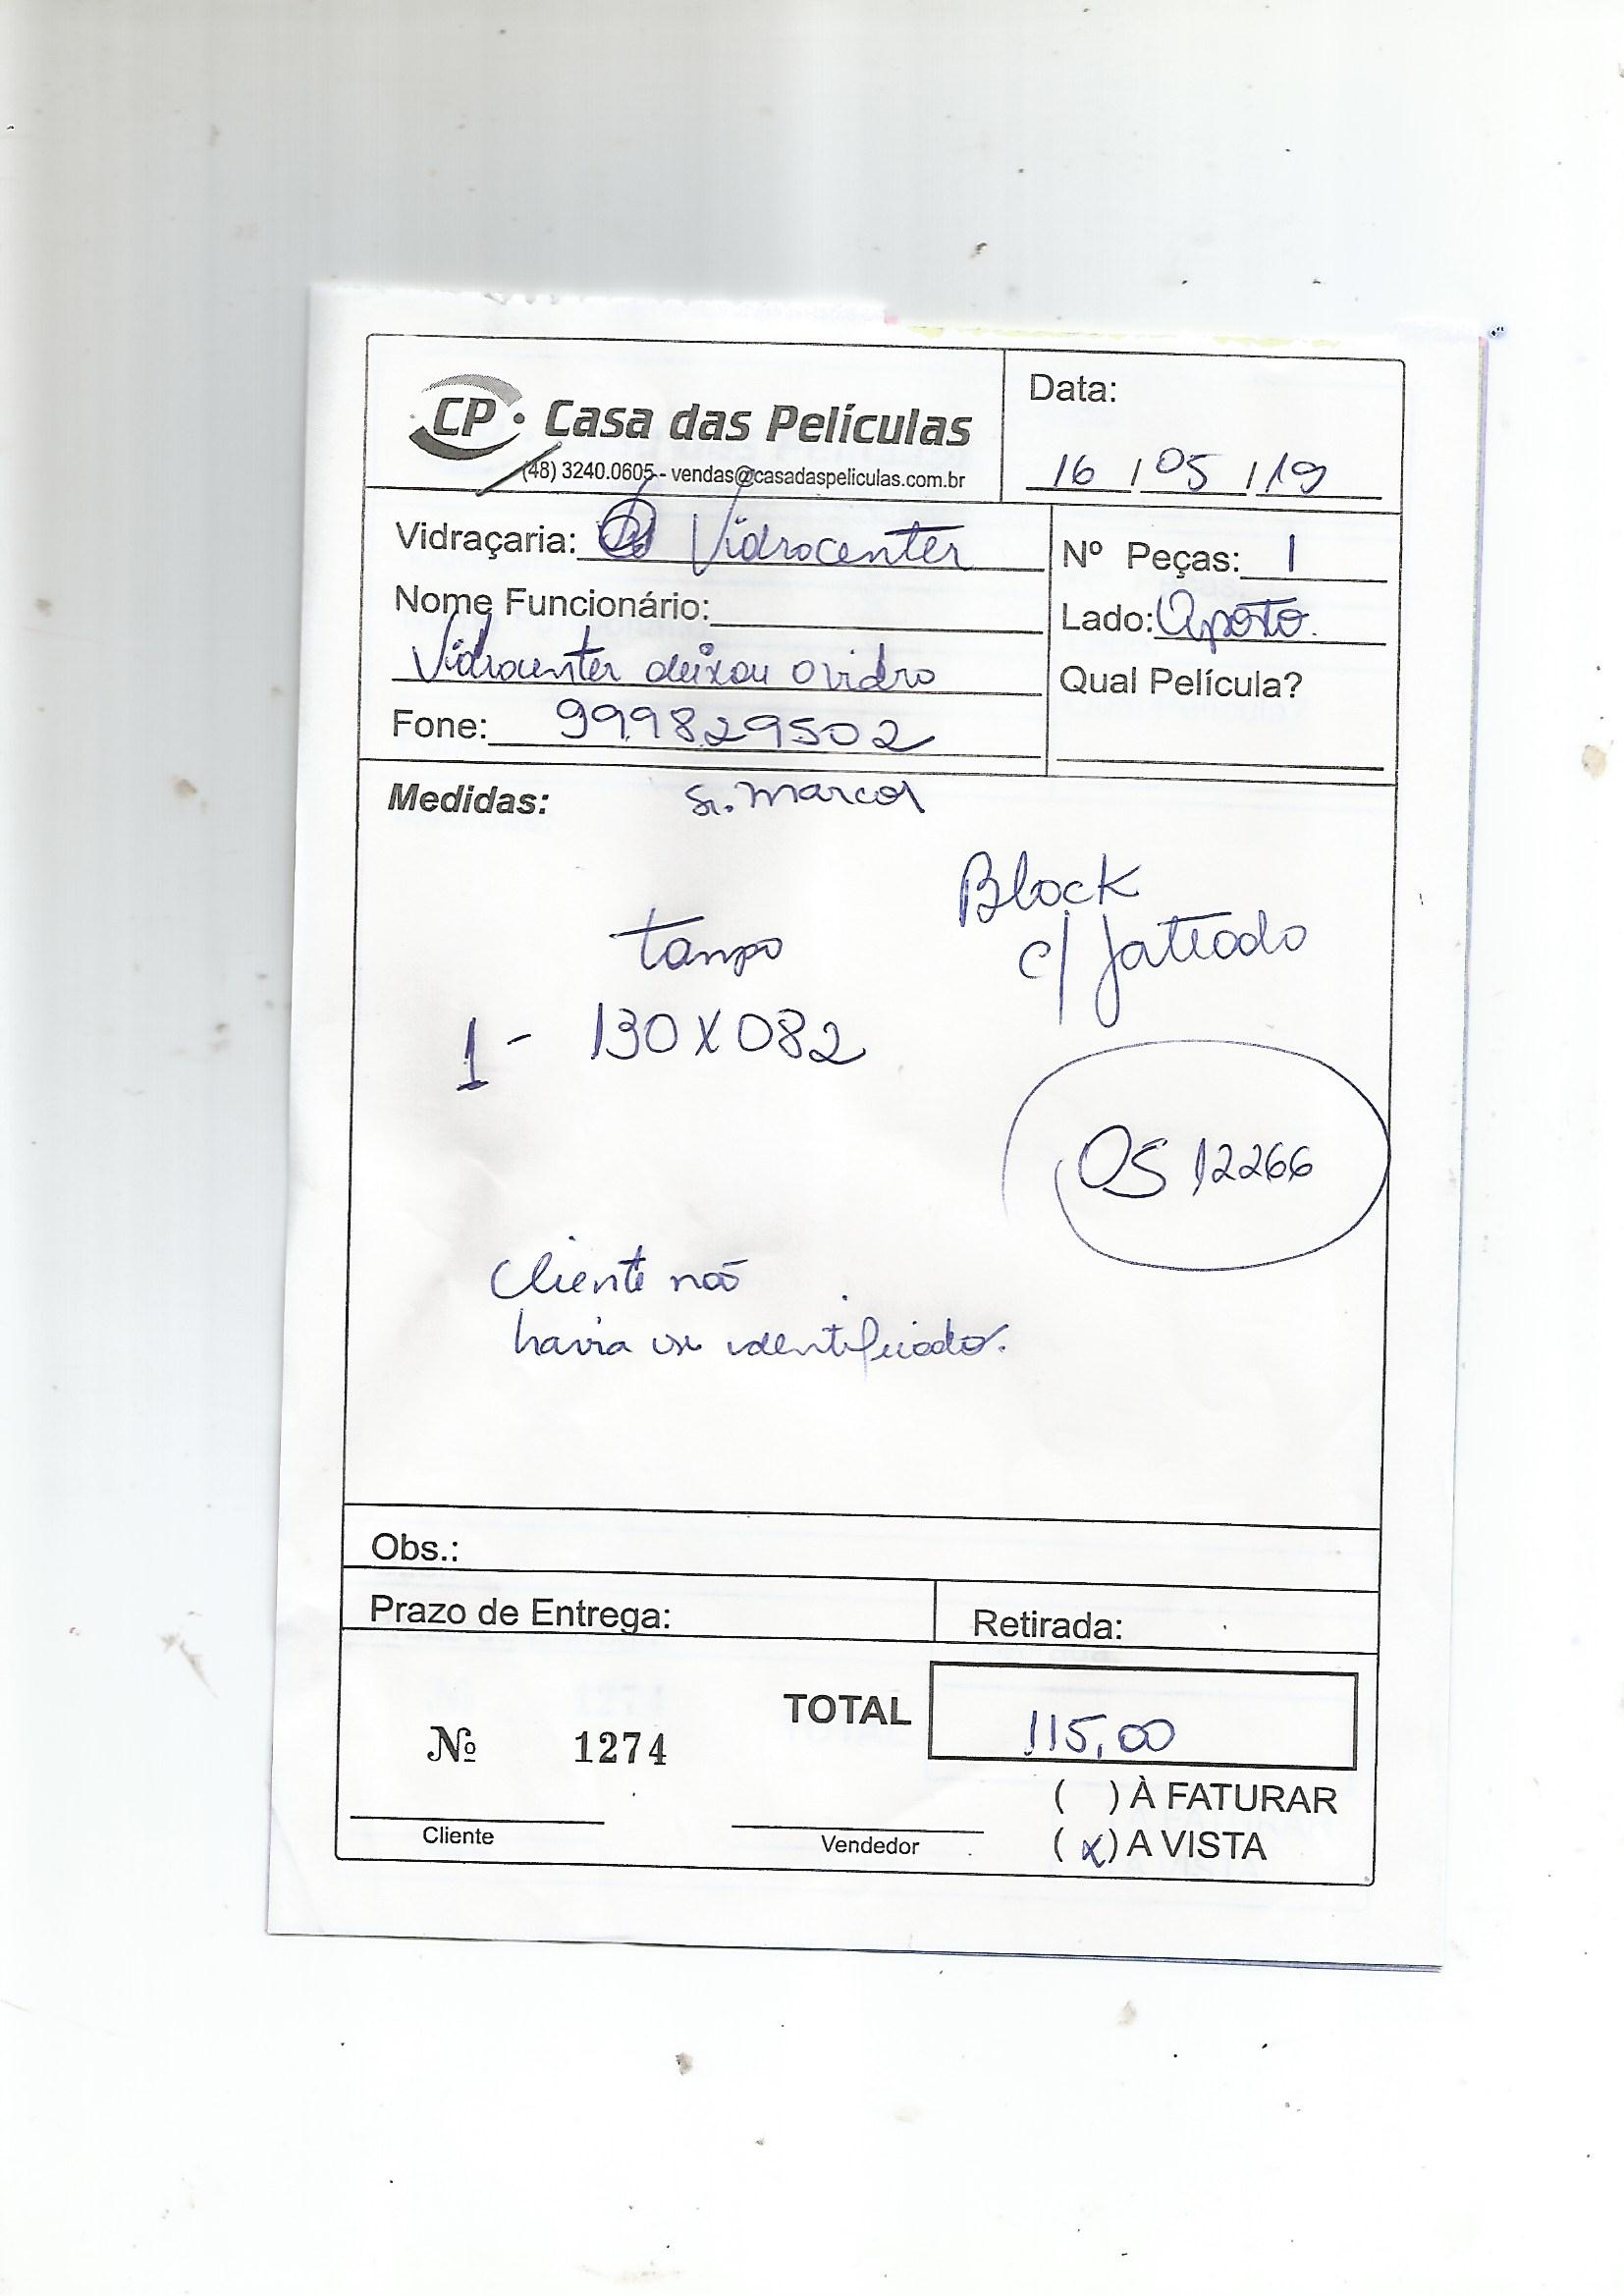 CP. Casa das Películas
(48) 3240.0605 - vendas@casadaspeliculas.com.br
Data:
16 / 05 / 19
Vidraçaria: Vidrocenter
Nº Peças: 1
Nome Funcionário:
Lado: Oposto.
Vidrocenter deixou o vidro
Qual Película?
Fone: 999829502
Medidas: Sr. Marcos
Block
c/ Jateado
tampo
1 - 130 X 082
OS 12266
Cliente não
havia se identificado.
Obs.:
Prazo de Entrega:
Retirada:
TOTAL 115,00
Nº 1274
( ) À FATURAR
(x) A VISTA
Cliente
Vendedor